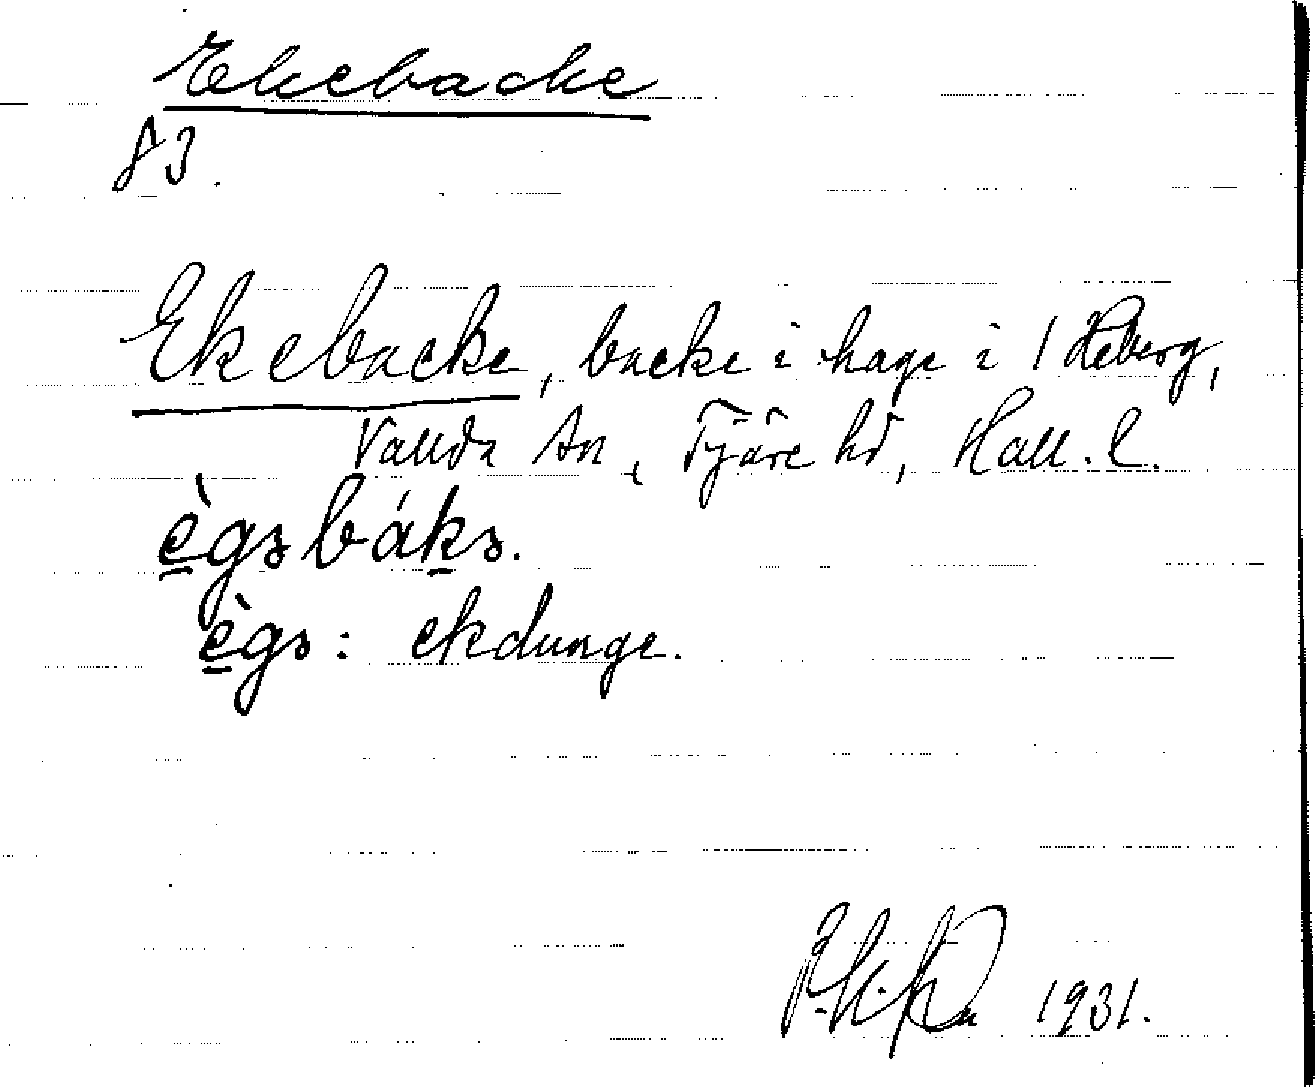 Ekebacke
83.
Ekebacke, backe i hage i 1 Heberg,
Vallda sn, Fjäre hd, Hall. l.
ègsbáks.
ègs: ekdunge.
1931.